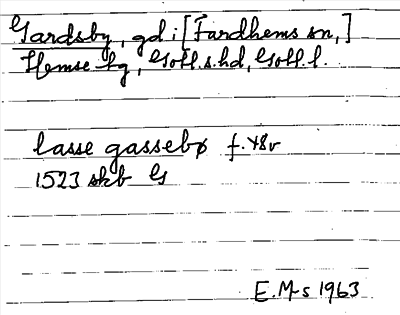 Gardsby, gd i [Fardhems sn,]
Hemse kg, Gotl.s.hd, Gotl.l.
lasse gassebø f. 48v
1523 skb G
E. M-s 1963